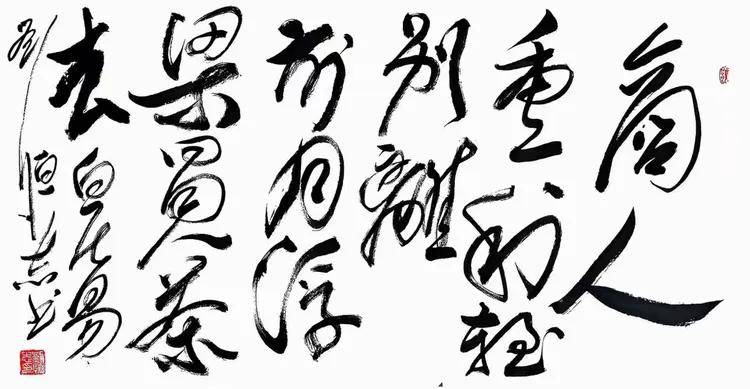 商人
重利輕
别離
前月浮
梁買茶
去白居易
刘恒志书